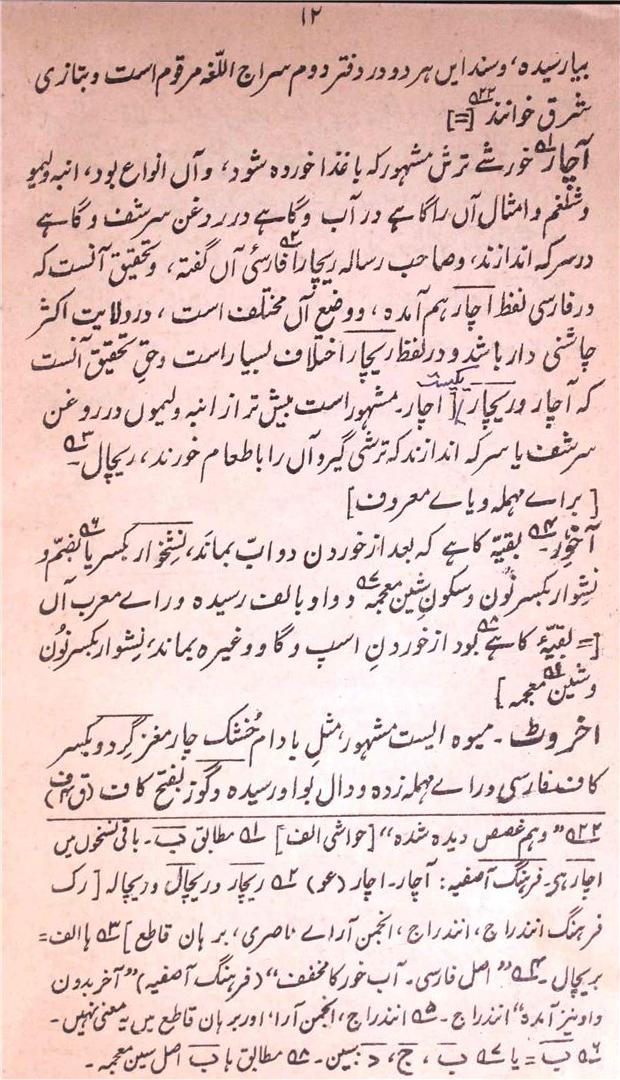 ۱۲
بیارسیده، وسند ایں ہر دو در دفتر دوم سراج اللّغہ مرقوم است وبتازی
شرق خوانند۵۲۲ [=]
آچار۵۱ خورشے ترش مشہور کہ باغذا خوردہ شود، وآں انواع بود، انبہ ولیمو
وشلغم وامثال آں را گاہے در آب وگاہے در روغن سرشف وگاہے
در سرکہ اندازند، وصاحب رسالہ ریچار۵۲ را فارسیٔ آں گفتہ، وتحقیق آنست کہ
در فارسی لفظ اچار ہم آمدہ، ووضع آں مختلف است، در ولایت اکثر
چاشنی دار باشد ودر لفظ ریچار اختلاف بسیار است وحقِ تحقیق آنست
کہ آچار وریچار یکیست [اچار۔ مشہور است بیش تر از انبہ ولیموں در روغن
سرشف یا سرکہ اندازند کہ ترشی گیرد آں را باطعام خورند، ریچال۵۳۔
براے مہملہ ویاے معروف]
آخور۵۴۔ بقیّہ کاہے کہ بعد از خوردن دوابّ بماند، نشخوار بکسر یا۵۶ بضمّ و
نشوار بکسر نُون وسکونِ شین معجمہ۵۷ وواو بالف رسیدہ وراے معرب آں
[= بقیّۂ کاہے۵۸ بود از خوردنِ اسپ وگاو وغیرہ بماند، نِشوار بکسر نُون
وشین۵۹ معجمہ]
اخروٹ۔ میوہ ایست مشہور، مثلِ بادام خُشک چار مغز گِردو بکسر
کاف فارسی وراے مہملہ زدہ ودال بواو رسیدہ وگوز بفتح کاف (ق۴ف)
۵۲۲ ”وہم غصص دیدہ شدہ“ [حواشی الف] ۵۱ مطابق ب۔ باقی نسخوں میں
اچار ہی۔ فرہنگ آصفیہ: آچار۔ اچار (عو) ۵۲ ریچار وریچال وریچالہ [رک
فرہنگ انندراج، انندراج، انجمن آراے ناصری، برہان قاطع] ۵۳ ہا الف=
بریچال۔ ۵۴ ”اصل فارسی۔ آب خور کا مخفف“ (فرہنگ آصفیہ) ”آخر بدون
واو نیز آمدہ“ انندراج۔ ۵۵ انندراج، انجمن آرا، اور برہان قاطع میں یہ معنی نہیں۔
۵۶ ب= یا ۵۷ ب، ج، د: ببین۔ ۵۸ مطابق ہا ب اصل سین معجمہ۔